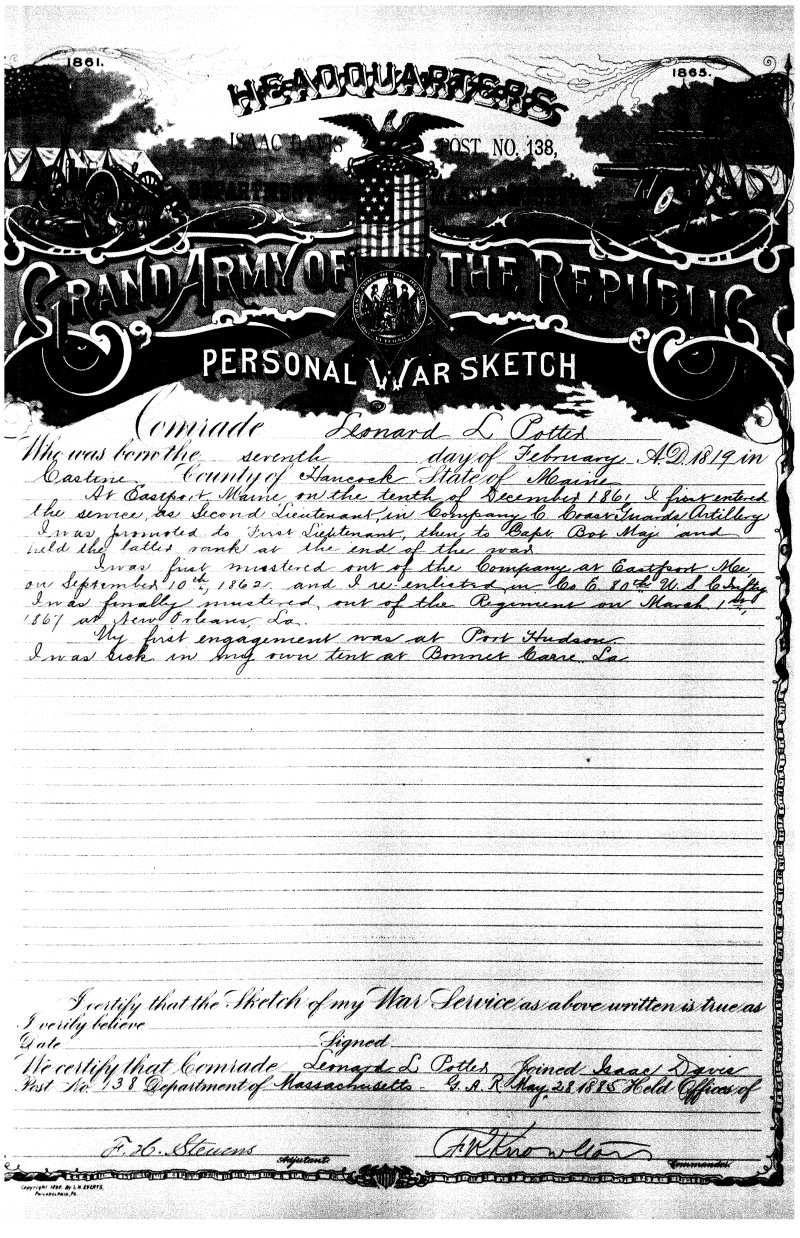 1861.
1865.
HEADQUARTERS
ISAAC DAVIS POST NO. 138,
DEPARTMENT OF MASSACHUSETTS
GRAND ARMY OF THE REPUBLIC
PERSONAL WAR SKETCH
Comrade Leonard L Potter
Who was born the seventh day of February A.D. 1819 in
Castine County of Hancock State of Maine
At Eastport, Maine on the tenth of December 1861 I first entered
the service, as Second Lieutenant, in Company C Coast Guards Artillery
I was promoted to First Lieutenant, then to Capt. Bvt Maj and
held the latter rank at the end of the war
I was first mustered out of the Company at Eastport Me
on September 10th, 1862. and I re enlisted in Co E. 80th U.S.C. Inftry
I was finally mustered out of the Regiment on March 1st,
1867 at New Orleans, La.
My first engagement was at Port Hudson
I was sick in my own tent at Bonnet Carre La
I certify that the Sketch of my War Service as above written is true as
I verily believe
Date Signed
We certify that Comrade Leonard L Potter Joined Isaac Davis
Post No. 138 Department of Massachusetts - G.A.R. May 28 1885 Held Offices of
F. H. Stevens Adjutant.
F K Knowlton Commander.
Copyright 1890 By L.H. EVERTS,
PHILADELPHIA, PA.